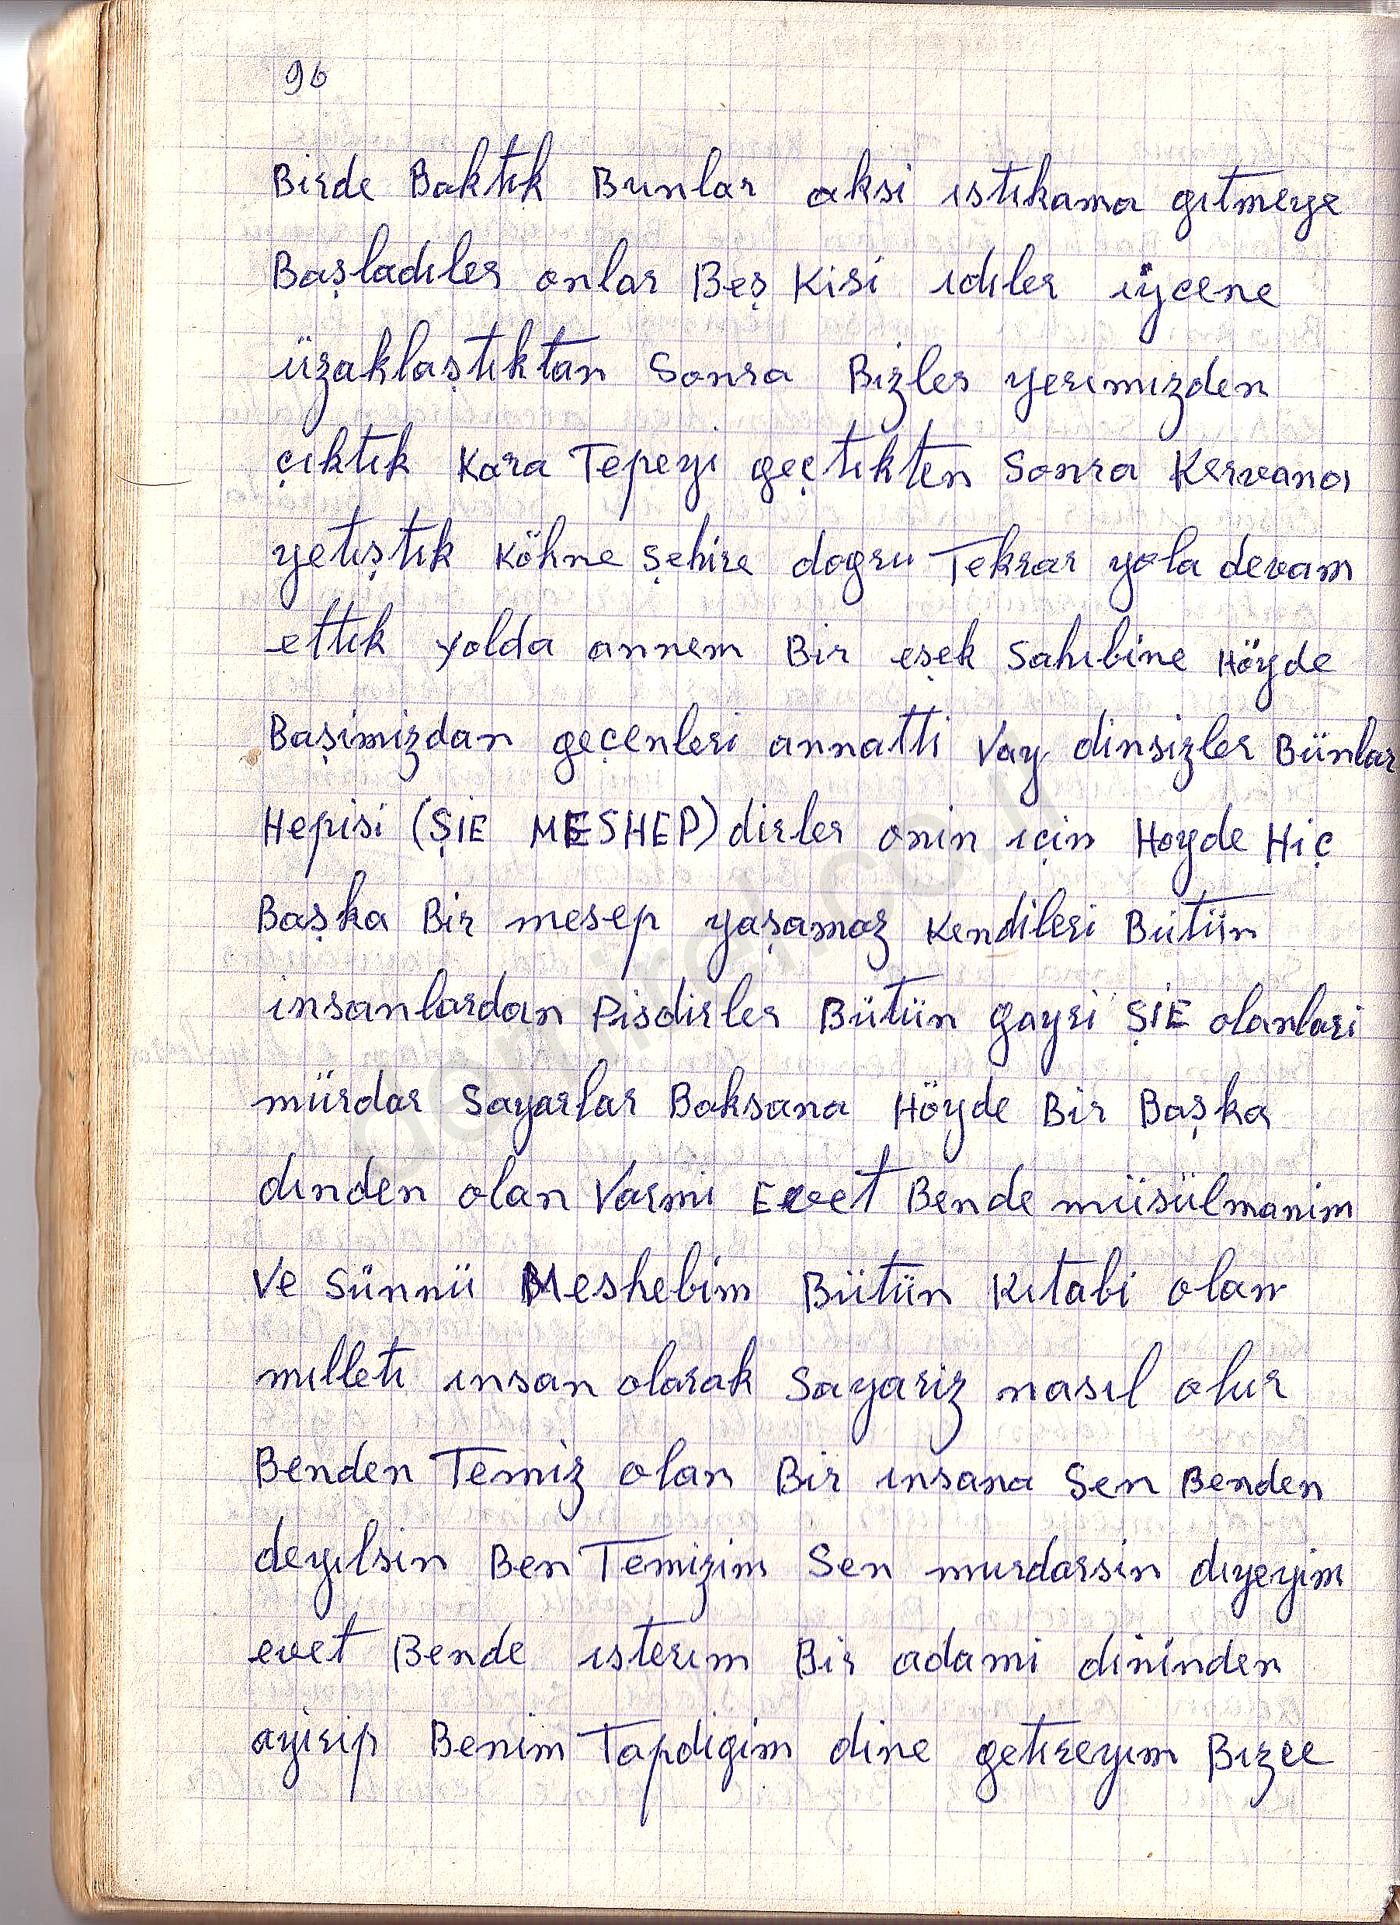 96
Birde Baktık Bunlar aksi ıstıkama gıtmeye
Başladıler onlar Beş Kisi ıdıler iycene
üzaklaştıktan Sonra Bizler yerımızden
çıktık Kara Tepeyi geçtıkten Sonra Kervana
yetıştık Köhne şehire dogru Tekrar yola devam
ettık yolda annem Bir eşek Sahıbine Höyde
Başimizdan geçenleri annatti Vay dinsizler Bünlar
Hepisi (ŞİE MESHEP) dirler onin için Hoyde Hiç
Başka Bir mesep yaşamaz Kendileri Bütün
insanlardan Pisdirler Bütün gayri ŞİE olanlari
mürdar Sayarlar Baksana Höyde Bir Başka
dınden olan Varmi Evet Bende müsülmanim
Ve Sünnü Meshebim Bütün Kıtabi olan
mılletı ınsan olarak Sayariz nasıl olur
Benden Temiz olan Bir ınsana Sen Benden
deyılsin Ben Temizim Sen murdarsin dıyeyim
evet Bende ısterım Bir adami dininden
ayirip Benim Tapdigim dine getıreyım Bızce
demirel.co.il